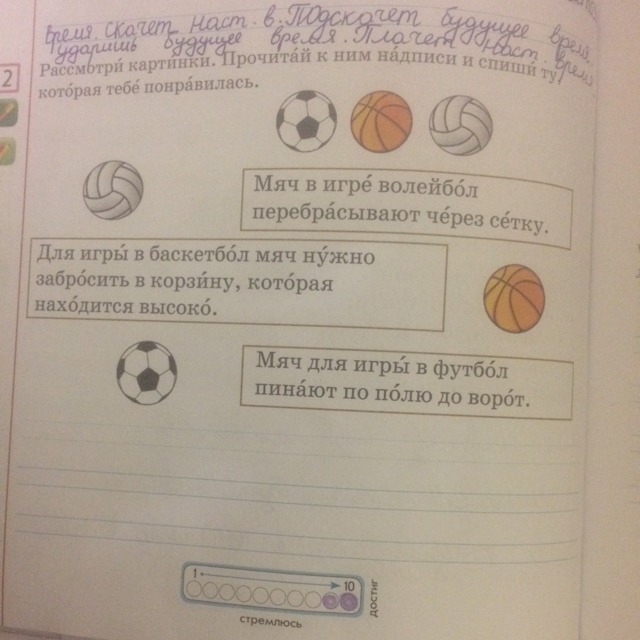 время. Скачет наст. в. Подскачет будущее время,
ударишь будущее время. Плачет наст. время
2
Рассмотри́ карти́нки. Прочита́й к ним на́дписи и спиши́ ту,
кото́рая тебе́ понра́вилась.
Мяч в игре́ волейбо́л
перебра́сывают че́рез се́тку.
Для игры́ в баскетбо́л мяч ну́жно
забро́сить в корзи́ну, кото́рая
нахо́дится высоко́.
Мяч для игры́ в футбо́л
пина́ют по по́лю до воро́т.
1 10
достиг
стремлюсь